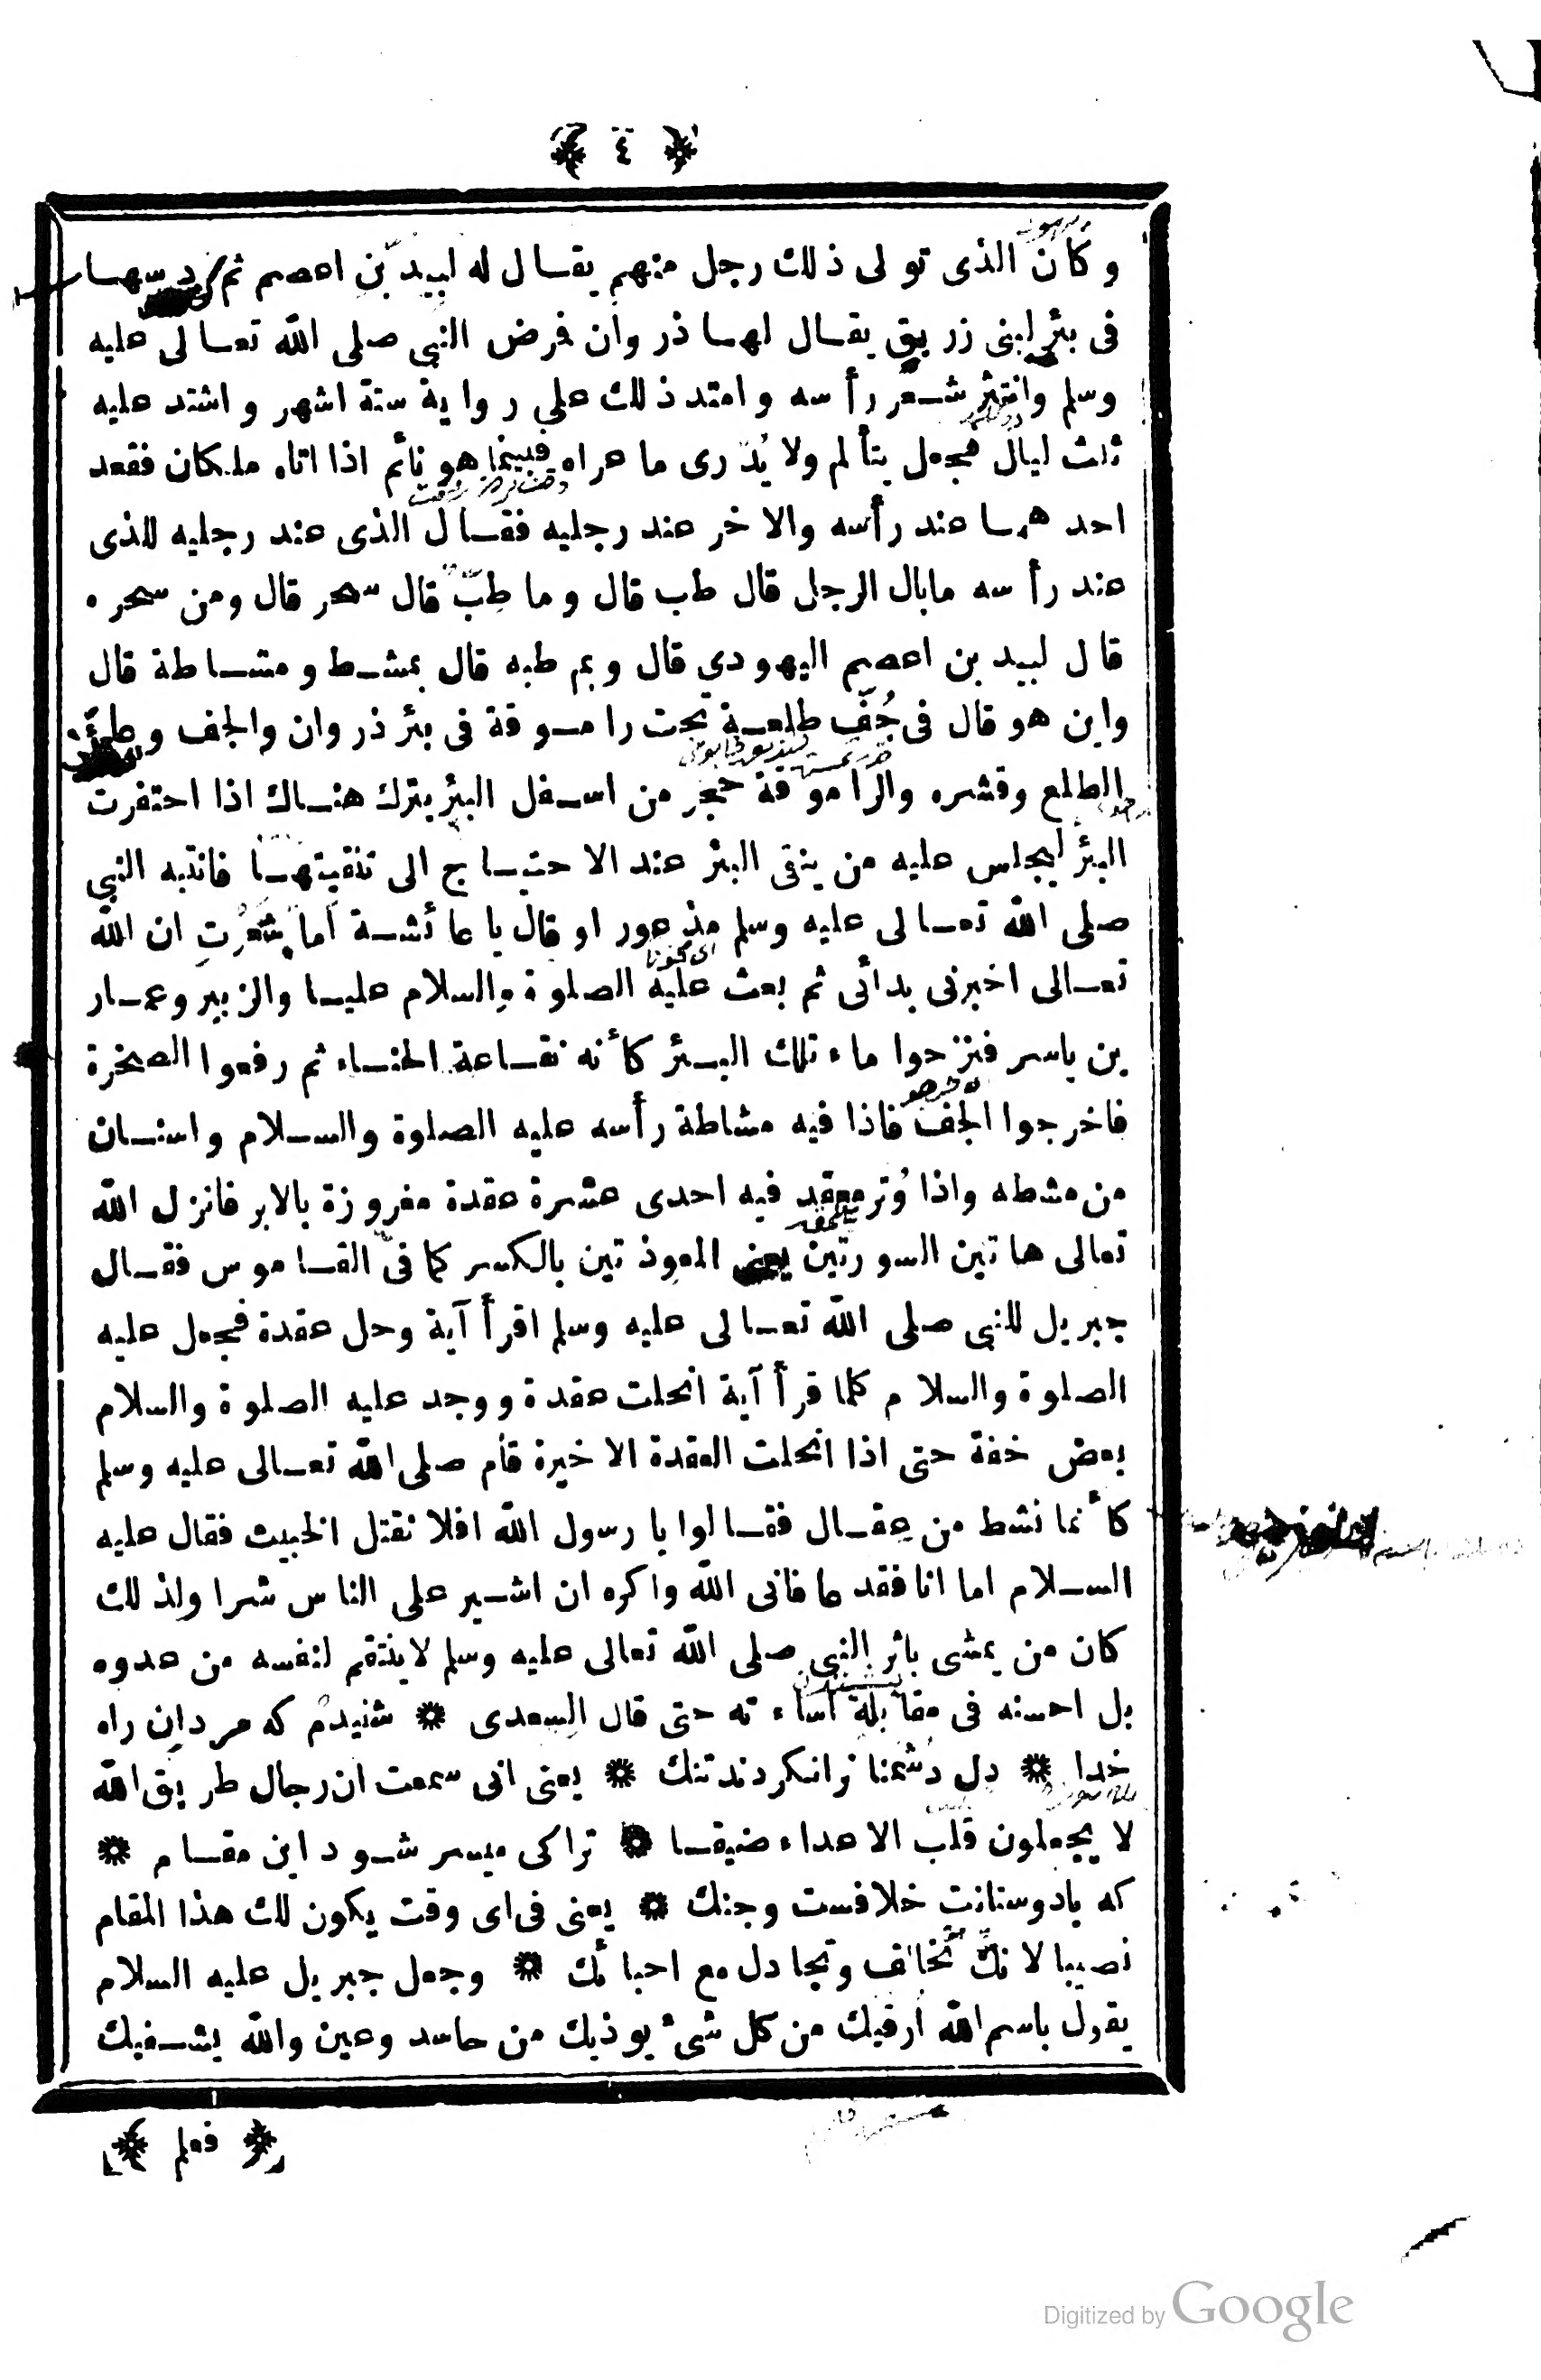 ﴿ ٤ ﴾
وكان الذى تولى ذلك رجل منهم يقال له لبيد بن اعصم ثم دسها
فى بئر لبنى زريق يقال لها ذروان فرض النبى صلى الله تعالى عليه
وسلم وانتثر شعر رأسه وامتد ذلك على رواية ستة اشهر واشتد عليه
ثلث ليال فجعل يتألم ولا يُدرى ما عراه فبينما هو نائم اذا اتاه ملكان فقعد
احدهما عند رأسه والاخر عند رجليه فقال الذى عند رجليه للذى
عند رأسه مابال الرجل قال طب قال وما طِبّ قال سحر قال ومن سحره
قال لبيد بن اعصم اليهودي قال وبم طبه قال بمشط ومشاطة قال
واين هو قال فى جُفّ طلعة تحت راموفة فى بئر ذروان والجف
الطلع وقشره والراموفة حجر من اسفل البئر يترك هناك اذا احتفرت
البئر ليجلس عليه من ينقى البئر عند الاحتياج الى تنقيتها فانتبه النبى
صلى الله تعالى عليه وسلم مذعورا وقال يا عائشة اَما شَعَرْتِ ان الله
تعالى اخبرنى بدائى ثم بعث عليه الصلوة والسلام عليا والزبير وعمار
بن ياسر فنزحوا ماء تلك البئر كأنه نقاعة الحناء ثم رفعوا الصخرة
فاخرجوا الجف فاذا فيه مشاطة رأسه عليه الصلوة والسلام واسنان
من مشطه واذا وُتر معقد فيه احدى عشرة عقدة مغروزة بالابر فانزل الله
تعالى هاتين السورتين يعنى المعوذتين بالكسر كما فى القاموس فقال
جبريل للنبى صلى الله تعالى عليه وسلم اقرأ آية وحل عقدة فجعل عليه
الصلوة والسلام كلما قرأ آية انحلت عقدة ووجد عليه الصلوة والسلام
بعض خفة حتى اذا انحلت العقدة الاخيرة قام صلى الله تعالى عليه وسلم
كأنما نشط من عِقال فقالوا يا رسول الله افلا نقتل الخبيث فقال عليه
السلام اما انا فقد عافانى الله واكره ان اشير على الناس شرا ولذلك
كان من يمشى باثر النبى صلى الله تعالى عليه وسلم لاينتقم لنفسه من عدوه
بل احسنه فى مقابلة اساءته حتى قال السعدى ❋ شنيدم كه مردان راه
خدا ❋ دل دشمنا نرانكردندتنك ❋ يعنى انى سمعت ان رجال طريق الله
لا يجعلون قلب الاعداء ضيقا ❋ تراكى ميسر شود اين مقام ❋
كه بادوستانت خلافست وجنك ❋ يعنى فى اى وقت يكون لك هذا المقام
نصيبا لانك تخالف وتجادل مع احبائك ❋ وجعل جبريل عليه السلام
يقول باسم الله ارقيك من كل شئ يوذيك من حاسد وعين والله يشفيك
﴿ فعلم ﴾
Digitized by Google